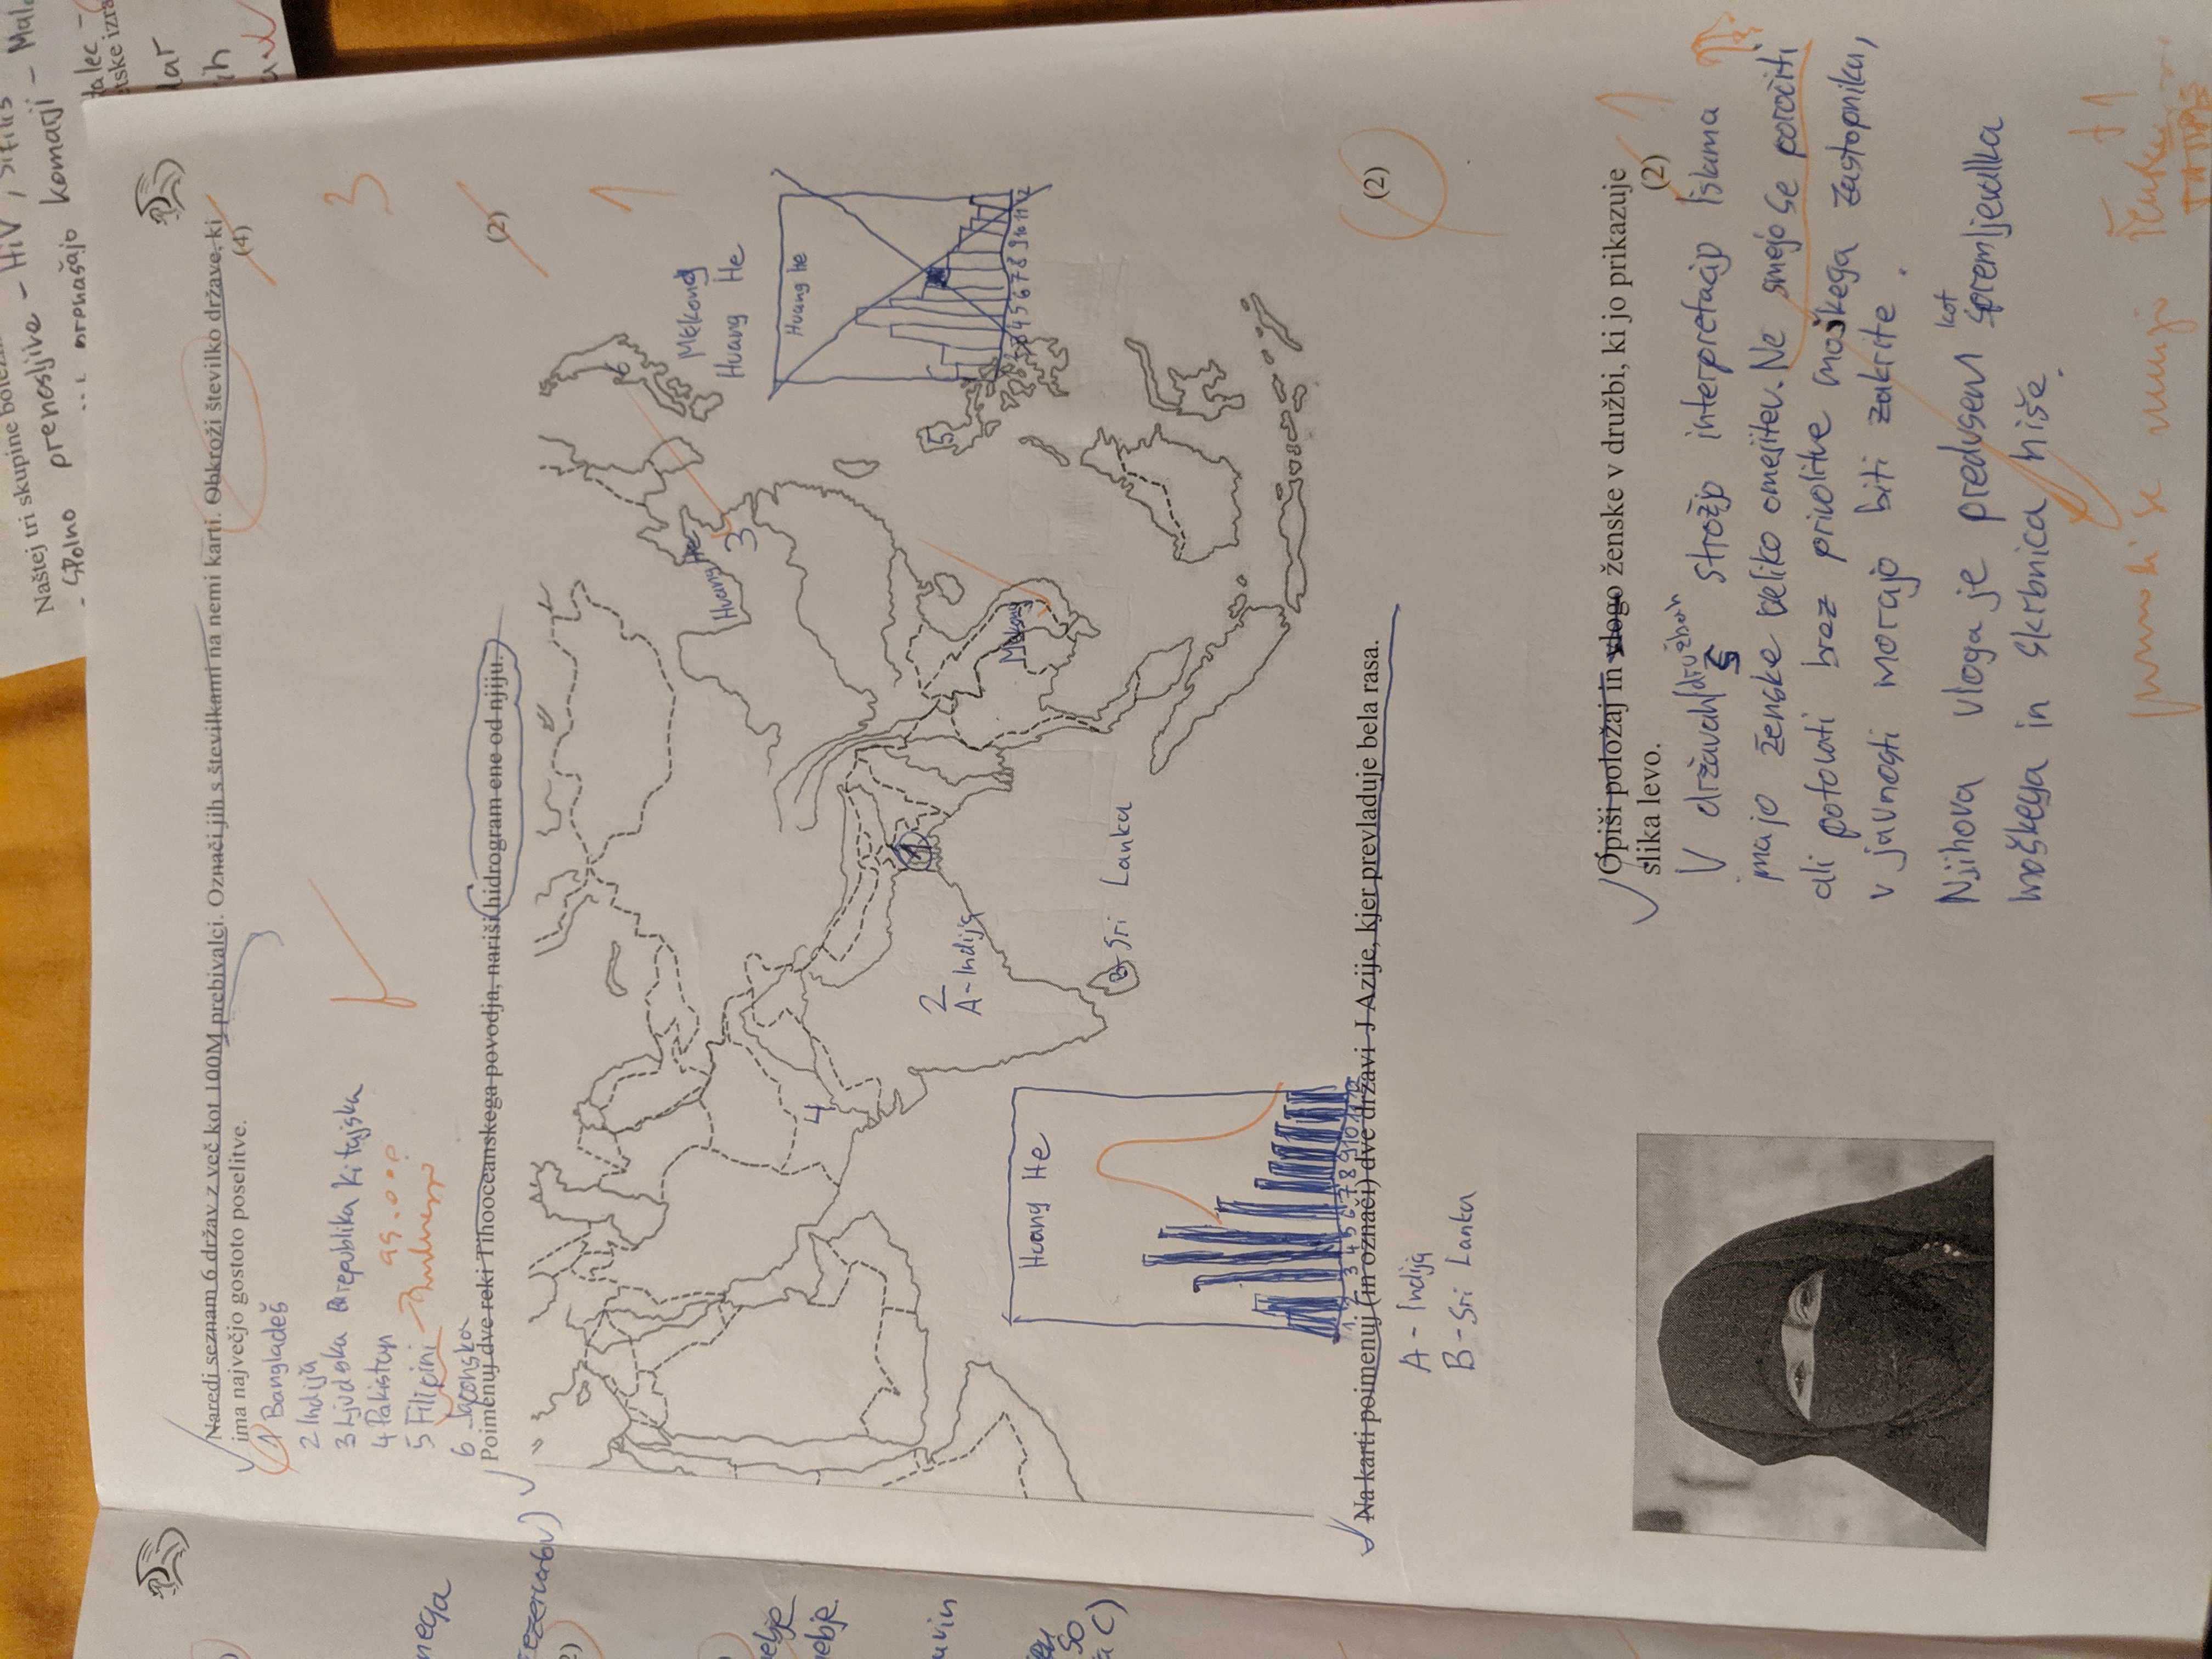 Naštej tri skupine
- Spolno prenosljive - HiV, Sifilis
prenašajo komarji -
Naredi seznam 6 držav z več kot 100M prebivalci. Označi jih s številkami na nemi karti. Obkroži številko države, ki
ima največjo gostoto poselitve.
(4)
1 Bangladeš
2 Indija
3 Ljudska republika Kitajska
4 Pakistan
5 Filipini
6 Japonska
3
Poimenuj dve reki Tihooceanskega povodja, nariši hidrogram ene od njiju.
(2)
1
6
Huang He
3
Mekong
Huang He
4
Huang He
1
2
A-Indija
5
Mekong
3 4 5 6 7 8 9 10 11 12
Huang He
B-Sri Lanka
1 2 3 4 5 6 7 8 9 10 11 12
Na karti poimenuj (in označi) dve državi J Azije, kjer prevladuje bela rasa.
(2)
A - Indija
B - Sri Lanka
Opiši položaj in vlogo ženske v družbi, ki jo prikazuje
slika levo.
(2)
1
V državah/družbah s strožjo interpretacijo Islama
imajo ženske veliko omejitev. Ne smejo se poročiti
ali potovati brez privolitve moškega zastopnika,
v javnosti morajo biti zakrite.
Njihova vloga je predvsem kot spremljevalka
moškega in skrbnica hiše.
+1